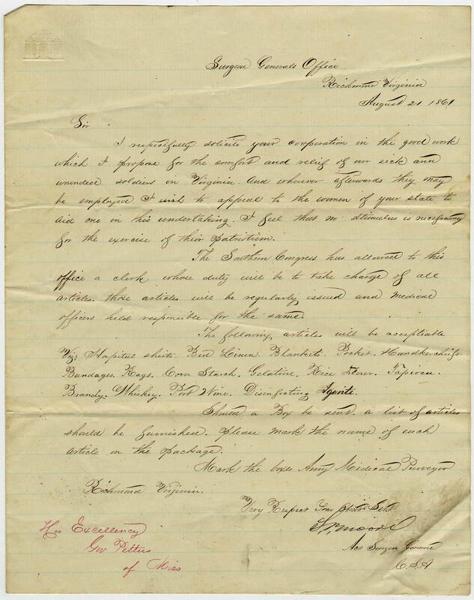 Surgeon Generals Office
Richmond Virginia
August 21 1861
Sir
I respectfully solicite your cooperation in the good work
which I propose for the comfort and relief of our sick and
wounded soldiers in Virginia and wherever afterwards they may
be employed I wish to appeal to the women of your state to
aid me in this undertaking. I feel that no stimulus is necessary
for the exercise of their patriotism.
The Southern Congress has allowed to this
office a clerk whose duty will be to take charge of all
articles. those articles will be regularly issued and medical
officers held responsible for the same.
The following articles will be acceptable
Viz; Hospital shirts. Bed Linen. Blankets. Pocket. Handkerchiefs.
Bandages. Rags. Corn Starch. Gelatine. Rice flour. Tapioca.
Brandy. Whiskey. Port Wine. Disinfecting Agents.
Should a Box be sent. a list of articles
should be furnished. please mark the name of each
article on the package.
Mark the boxes Army Medical Purveyor
Richmond Virginia.
Very Respect Your Obdt Svt
S P Moore
Act Surgeon General
C.S.A
His Excellency
Gov Pettus
of Miss